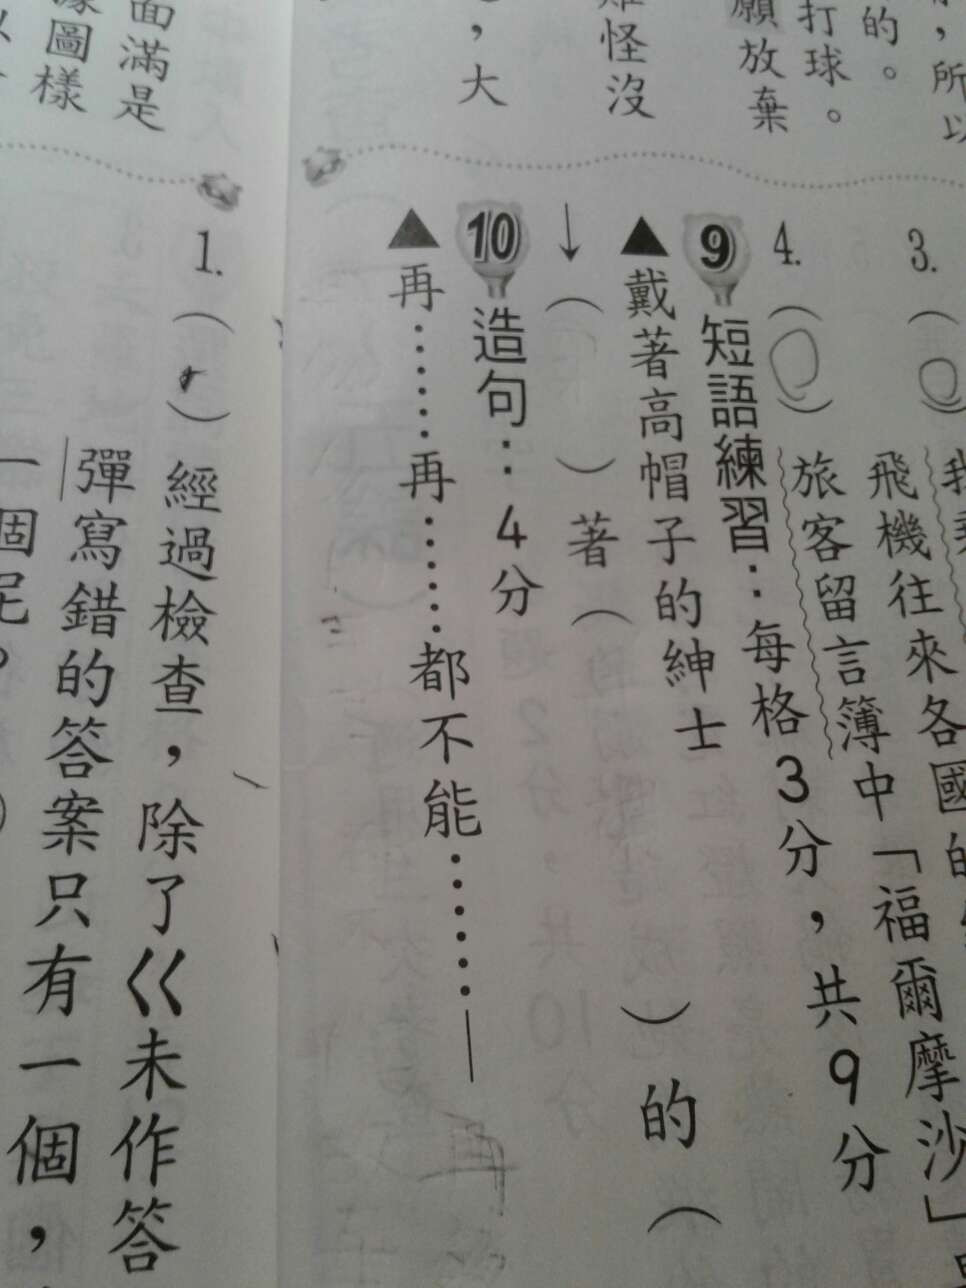 ，所以
的。
打球。
願放棄
怪沒
，大
面滿是
像圖樣
3.（○）
飛機往來各國的
4.（○）
旅客留言簿中「福爾摩沙」
9 短語練習：每格3分，共9分
▲戴著高帽子的紳士
↓（ ）著（ ）的（
10 造句：4分
▲再……再……都不能……
再
1.（ ）經過檢查，除了ㄍ未作答
彈寫錯的答案只有一個，
一個呢？